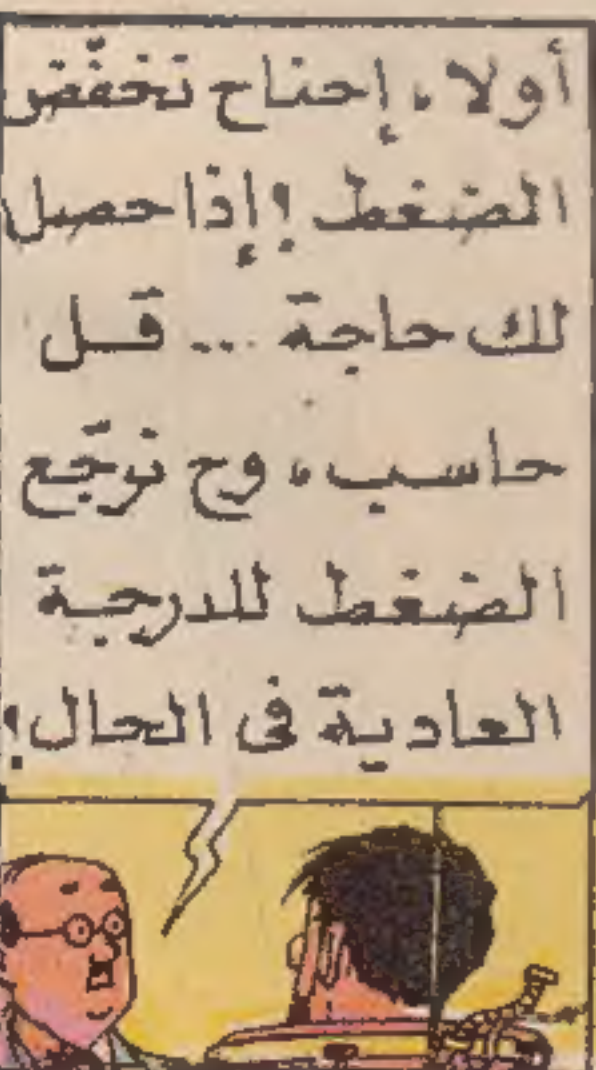 أولا، إحناح نخفّض
الضغط ! إذا حصل
لك حاجة ... قل
حاسب، وح نرجّع
الضغط للدرجة
العادية فى الحال !